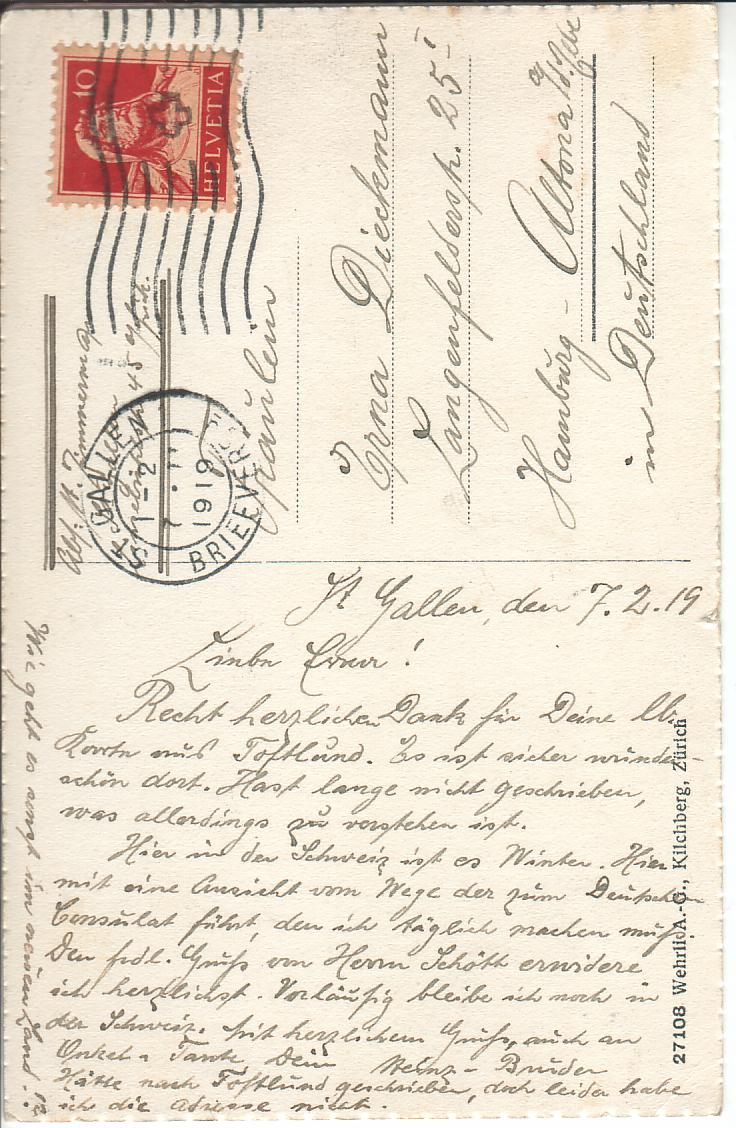 10
HELVETIA
Abs: A. Zimmermann
45
ST. GALLEN
1-2
7. II
1919
BRIEFVERS
Fräulein
Erna Dieckmann
Langenfelderstr. 25 I
Hamburg - Altona a/d. Elbe
in Deutschland
St Gallen, den 7.2.19
Liebe Erna!
Recht herzlichen Dank für Deine lb.
Karte aus Toftlund. Es ist sicher wunder-
schön dort. Hast lange nicht geschrieben,
was allerdings zu verstehen ist.
Hier in der Schweiz ist es Winter. Hier
mit eine Ansicht vom Wege der zum Deutschen
Consulat führt, den ich täglich machen muß.
Den frdl. Gruß von Herrn Schött erwidere
ich herzlichst. Vorläufig bleibe ich noch in
der Schweiz. Mit herzlichem Gruß, auch an
Onkel u Tante Dein Heinz - Bruder
Hätte nach Toftlund geschrieben, doch leider habe
ich die Adresse nicht.
Wie geht es sonst im neuen Land.!?
27108 Wehrli A.-G., Kilchberg, Zürich